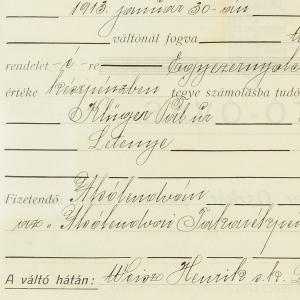 1913 január 30-án
váltónál fogva
rendelet-é-re Egyezernyolc
értéke készpénzben tegye számolásba tudó
Klüger Pál úr
Letenye
Fizetendő Alsólendván
az „Alsólendvai Takarékpén
A váltó hátán: Weisz Henrik s.k.